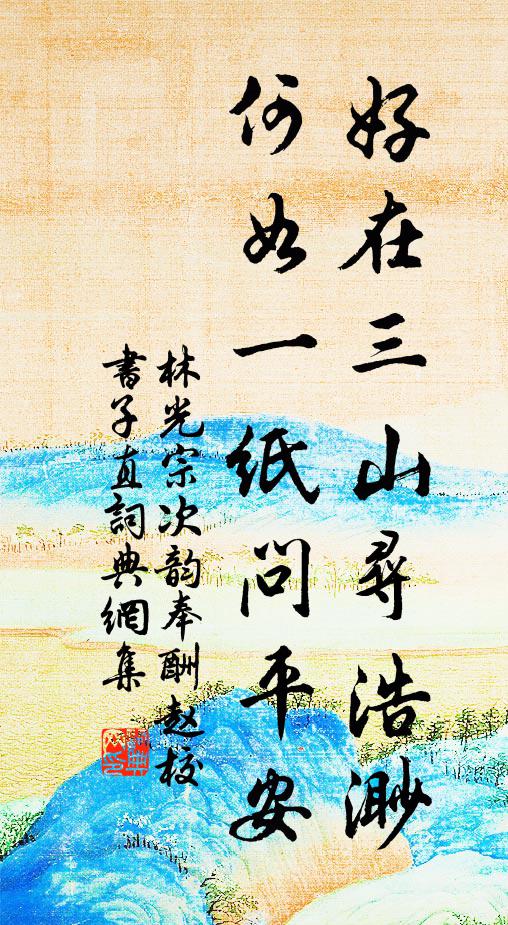 好在三山尋浩渺
何如一紙問平安
林光宗次韵奉酬赵校
書子直詞典網集